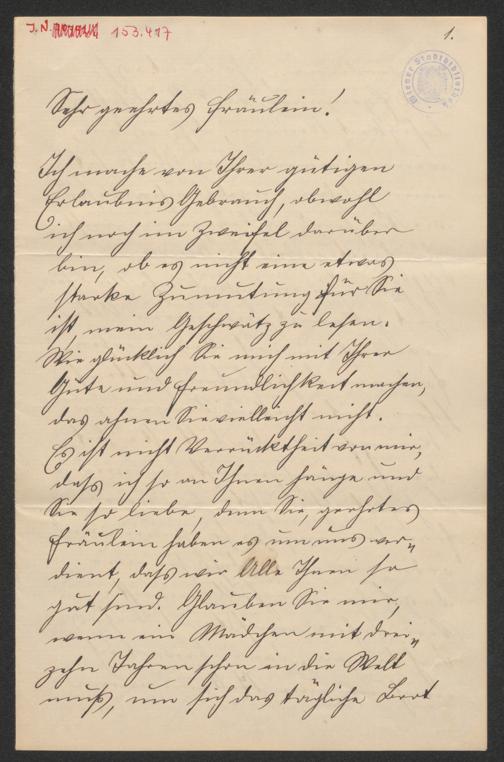 J.N. 153.417
1.
Wiener Stadtbibliothek
Sehr geehrtes Fräulein!
Ich mache von Ihrer gütigen
Erlaubnis Gebrauch, obwohl
ich noch im Zweifel darüber
bin, ob es nicht eine etwas
starke Zumutung für Sie
ist, mein Geschwätz zu lesen.
Wie glücklich Sie mich mit Ihrer
Güte und Freundlichkeit machen,
das ahnen Sie vielleicht nicht.
Es ist nicht Verrücktheit von mir,
dass ich so an Ihnen hänge und
Sie so liebe, denn Sie, geehrtes
Fräulein haben es um uns ver„
dient, dass wir Alle Ihnen so
gut sind. Glauben Sie mir,
wenn ein Mädchen mit drei„
zehn Jahren schon in die Welt
muß, um sich das tägliche Brot